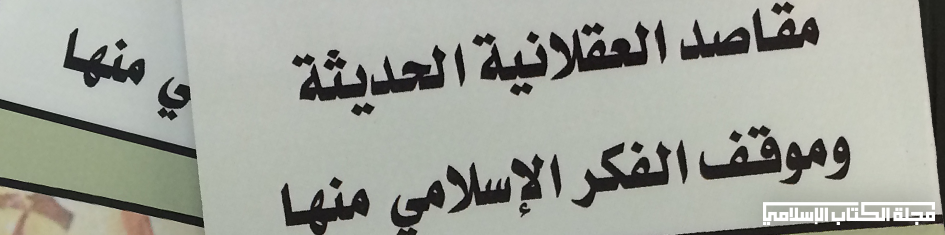 مقاصد العقلانية الحديثة
وموقف الفكر الإسلامي منها
ي منها
مجلة الكتاب الإسلامي